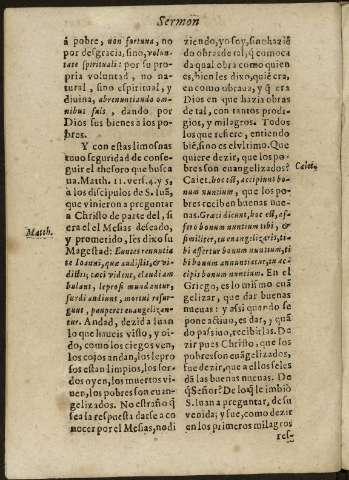 Sermon
á pobre, non fortuna, no
por desgracia, sino, volun-
tate spirituali: por su pro-
pria voluntad, no na-
tural, sino espiritual, y
diuina, abrenuntiando om-
nibus suis, dando por
Dios sus bienes à los po-
bres.
Y con estas limosnas
tuuo seguridad de conse-
guir el thesoro que busca
ua. Matth. 11. vers. 4. y 5,
a los dicipulos de S. Iuã,
que vinieron a preguntar
a Christo de parte del, si
era el el Mesias deseado,
y prometido, les dixo su
Magestad: Euntes renuntia
te Ioanni, quæ audistis, & vi-
distis; cæci vident, claudi am
bulant, leprosi mundantur,
surdi audiunt, mortui resur-
gunt, pauperes euangelizan-
tur. Andad, dezid a Iuan
lo que haueis visto, y oi-
do, como los ciegos ven,
los cojos andan, los lepro
sos estan limpios, los sor-
dos oyen, los muertos vi-
uen, los pobres son euan-
gelizados. No estraño q̃
sea la respuesta darse a co
nocer por el Mesias, no di
Matth.
ziendo, yo soy, sino haziẽ
do obras de tal, q̃ como ca
da qual obra como quien
es, bien les dixo, quiẽ era,
en como obraua, y q̃ era
Dios en que hazia obras
de tal, con tantos prodi-
gios, y milagros. Todos
los que refiere, entiendo
biẽ, sino es el vltimo. Que
quiere dezir, que los po-
bres son euangelizados?
Caiet. hoc est, accipiunt bo-
num nuntium, que los po-
bres reciben buenas nue-
uas. Græci dicunt, hoc est, af-
fero bonum nuntium tibi, &
similiter, tu euangelizaris, ti-
bi affertur bonum nuntium, ti
bi bonum annuntiatur, tu ac
cipis bonum nuntium. En el
Griego, es lo mismo euã
gelizar, que dar buenas
nueuas: y assi quando se
pone actiuo, es dar, y quã
do passiuo, recibirlas. De
zir pues Christo, que los
pobres son euãgelizados,
fue dezir, que a ellos se les
dà las buenas nueuas. De
q̃ Señor? De lo q̃ le imbiò
S. Iuan a preguntar, de su
venida; y fue, como dezir
en los primeros milagros
Caiet.
res-